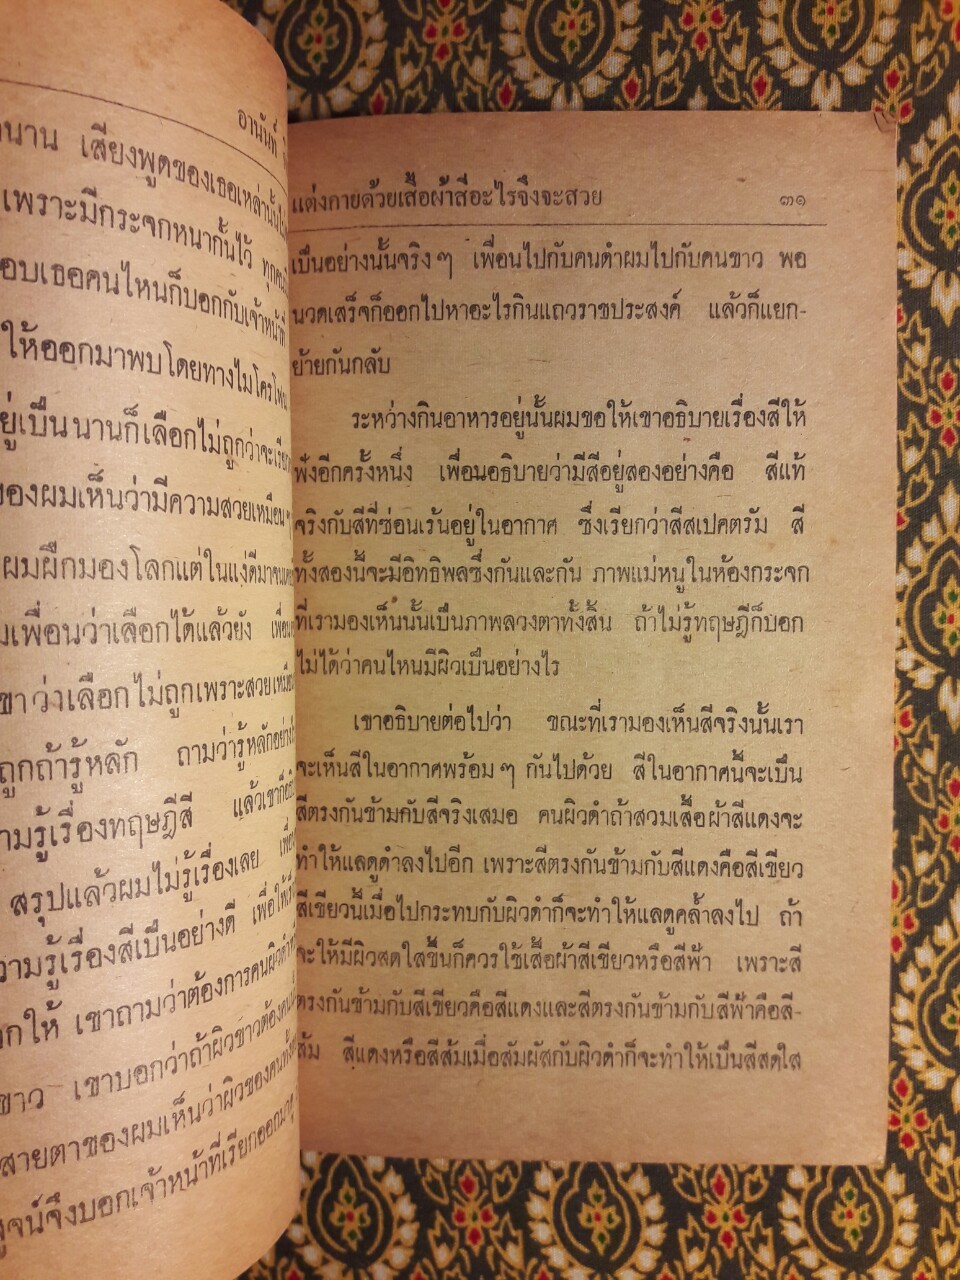 อานันท์
นาน เสียงพูดของเธอเหล่านั้น
เพราะมีกระจกหนากั้นไว้ ทุกคน
อบเธอคนไหนก็บอกกับเจ้าหน้าที่
ให้ออกมาพบโดยทางไมโครโฟน
ยู่เป็นนานก็เลือกไม่ถูกว่าจะเรียก
ของผมเห็นว่ามีความสวยเหมือนๆ
ผมฝึกมองโลกแต่ในแง่ดีมาจน
มเพื่อนว่าเลือกได้แล้วยัง
ขาว่าเลือกไม่ถูกเพราะสวย
ถูกถ้ารู้หลัก ถามว่ารู้หลักอย่าง
ามรู้เรื่องทฤษฎีสี แล้วเขาก็
สรุปแล้วผมไม่รู้เรื่องเลย
วามรู้เรื่องสีเป็นอย่างดี เพื่อให้
กให้ เขาถามว่าต้องการคนผิวดำ
ขาว เขาบอกว่าถ้าผิวขาวต้อง
สายตาของผมเห็นว่าผิวของคนทั้ง
จน์จึงบอกเจ้าหน้าที่เรียกออกมา
แต่งกายด้วยเสื้อผ้าสีอะไรจึงจะสวย ๓๑
เป็นอย่างนั้นจริงๆ เพื่อนไปกับคนดำผมไปกับคนขาว พอ
นวดเสร็จก็ออกไปหาอะไรกินแถวราชประสงค์ แล้วก็แยก-
ย้ายกันกลับ
ระหว่างกินอาหารอยู่นั้นผมขอให้เขาอธิบายเรื่องสีให้
ฟังอีกครั้งหนึ่ง เพื่อนอธิบายว่ามีสีอยู่สองอย่างคือ สีแท้
จริงกับสีที่ซ่อนเร้นอยู่ในอากาศ ซึ่งเรียกว่าสีสเปคตรัม สี
ทั้งสองนี้จะมีอิทธิพลซึ่งกันและกัน ภาพแม่หนูในห้องกระจก
ที่เรามองเห็นนั้นเป็นภาพลวงตาทั้งสิ้น ถ้าไม่รู้ทฤษฎีก็บอก
ไม่ได้ว่าคนไหนมีผิวเป็นอย่างไร
เขาอธิบายต่อไปว่า ขณะที่เรามองเห็นสีจริงนั้นเรา
จะเห็นสีในอากาศพร้อมๆ กันไปด้วย สีในอากาศนี้จะเป็น
สีตรงกันข้ามกับสีจริงเสมอ คนผิวดำถ้าสวมเสื้อผ้าสีแดงจะ
ทำให้แลดูดำลงไปอีก เพราะสีตรงกันข้ามกับสีแดงคือสีเขียว
สีเขียวนี้เมื่อไปกระทบกับผิวดำก็จะทำให้แลดูคล้ำลงไป ถ้า
จะให้มีผิวสดใสขึ้นก็ควรใช้เสื้อผ้าสีเขียวหรือสีฟ้า เพราะสี
ตรงกันข้ามกับสีเขียวคือสีแดงและสีตรงกันข้ามกับสีฟ้าคือสี-
ส้ม สีแดงหรือสีส้มเมื่อสัมผัสกับผิวดำก็จะทำให้เป็นสีสดใส